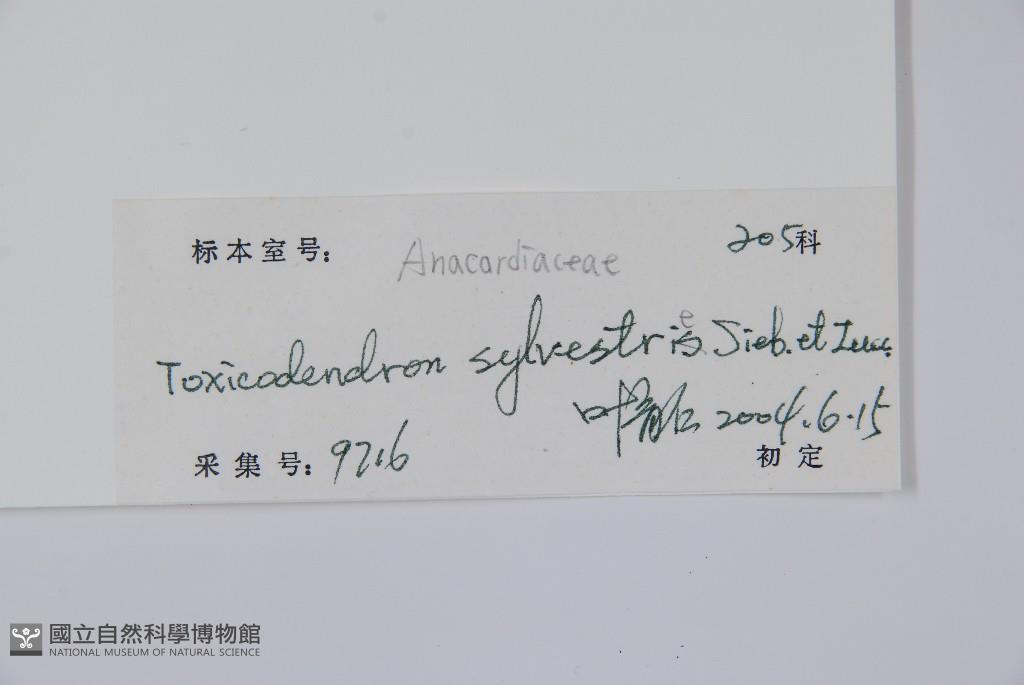 标本室号: Anacardiaceae 205科
Toxicodendron sylvestris e Sieb. et Zucc.
2004.6.15
采集号: 9216
初定
國立自然科學博物館
NATIONAL MUSEUM OF NATURAL SCIENCE